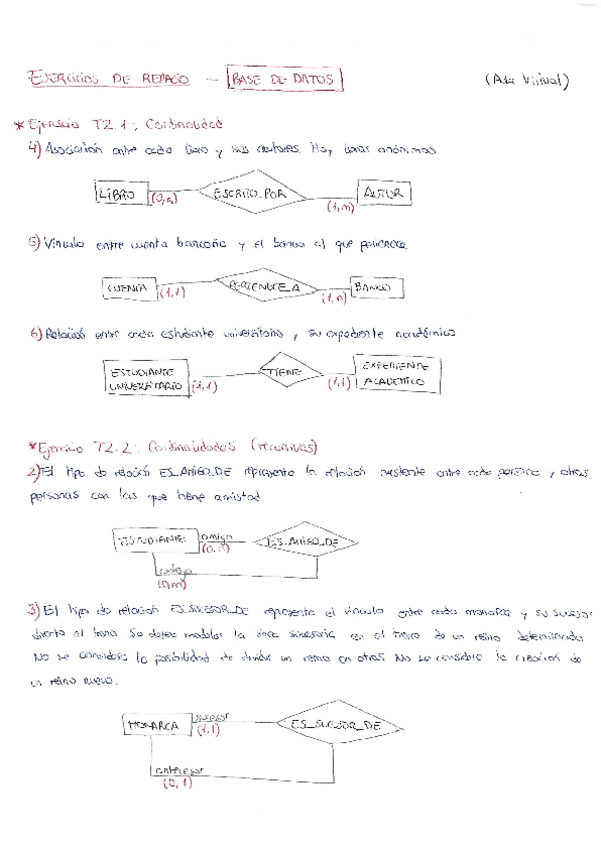 EJERCICIOS DE REPASO — BASE DE DATOS (Aula Virtual)
* Ejercicio T2.1: Cardinalidad
4) Asociación entre cada libro y sus autores. Hay libros anónimos
LIBRO (0,n) ESCRITO_POR (1,n) AUTOR
5) Vínculo entre cuenta bancaria y el banco al que pertenece.
CUENTA (1,1) PERTENECE_A (1,n) BANCO
6) Relación entre cada estudiante universitario y su expediente académico
ESTUDIANTE UNIVERSITARIO (1,1) TIENE (1,1) EXPEDIENTE ACADÉMICO
* Ejercicio T2.2: Cardinalidades (recursivas)
2) El tipo de relación ES_AMIGO_DE representa la relación existente entre cada persona y otras
personas con las que tiene amistad
ESTUDIANTE amigo (0,n) ES_AMIGO_DE
(0,m)
3) El tipo de relación ES_SUCESOR_DE representa el vínculo entre cada monarca y su sucesor
directo al trono. Se desea modelar la línea sucesoria en el trono de un reino determinado
No se considera la posibilidad de dividir un reino en otros. No se considera la creación de
un reino nuevo.
MONARCA sucesor (1,1) ES_SUCESOR_DE
antecesor
(0,1)